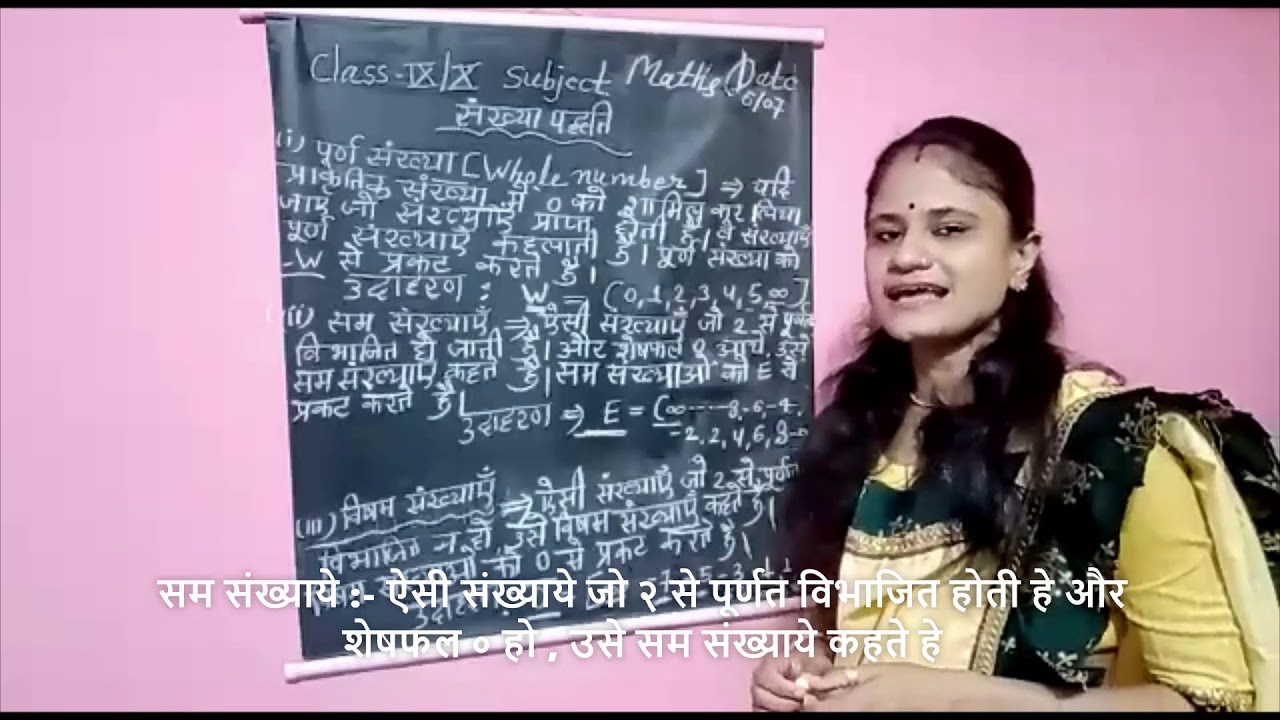 Class-IX/X Subject Maths Date
6/07
संख्या पद्धति
(i) पूर्ण संख्या [Whole number] ⇒ यदि
प्राकृतिक संख्या में 0 को शामिल कर लिया
जाएँ जो संख्याएँ प्राप्त होती है। वे संख्याएँ
पूर्ण संख्याएँ कहलाती है। पूर्ण संख्या को
-W से प्रकट करते हैं।
उदाहरण : W = (0,1,2,3,4,5,∞]
(ii) सम संख्याएँ ⇒ ऐसी संख्याएँ जो 2 से पूर्णत
विभाजित हो जाती है। और शेषफल आये, उसे
सम संख्याएँ कहते है। सम संख्याओं को E से
प्रकट करते है।
उदाहरण ⇒ E = (∞-----8,-6,-4,
-2,2,4,6,8-∞
(iii) विषम संख्याएँ ⇒ ऐसी संख्याएँ जो 2 से पूर्णत
विभाजित न हो, उसे विषम संख्याएँ कहते है।
संख्याओं को 0 से प्रकट करते है।
सम संख्याये :- ऐसी संख्याये जो २ से पूर्णत विभाजित होती हे और
शेषफल ० हो , उसे सम संख्याये कहते हे